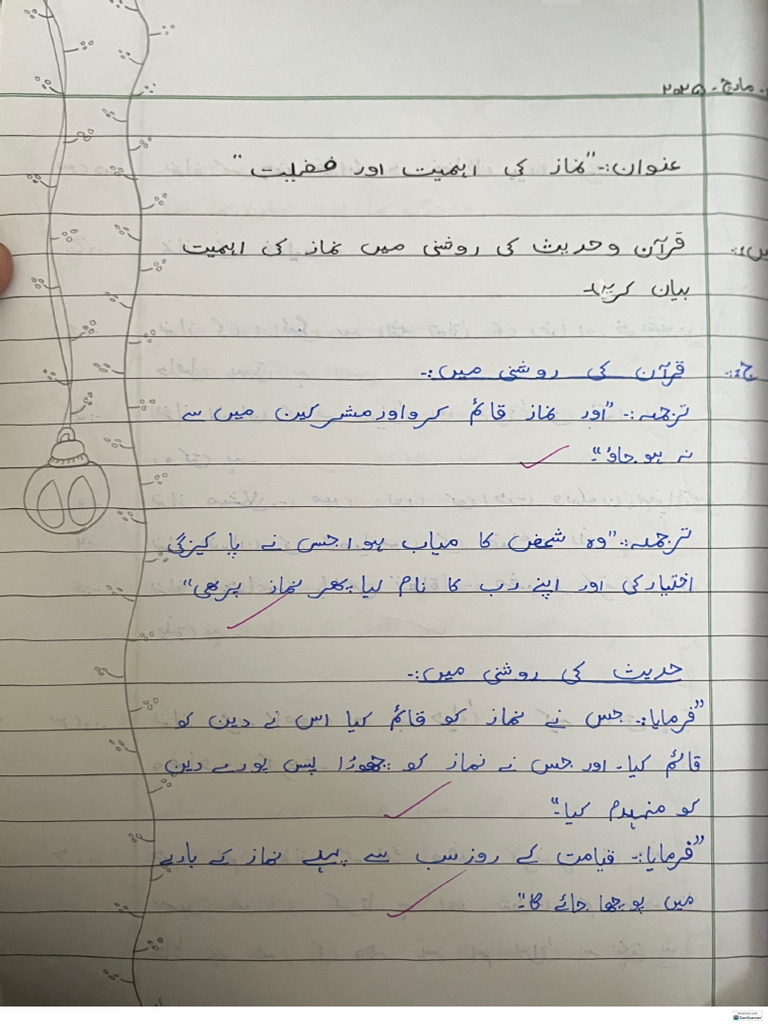 مارچ - ۲۰۲۵
عنوان:- "نماز کی اہمیت اور فضیلت"
س:- قرآن و حدیث کی روشنی میں نماز کی اہمیت
بیان کریں۔
ج:- قرآن کی روشنی میں:-
ترجمہ:- "اور نماز قائم کرو اور مشرکین میں سے
نہ ہو جاؤ"۔
ترجمہ:- "وہ شخص کا میاب ہوا جس نے پا کیزگی
اختیار کی اور اپنے رب کا نام لیا پھر نماز پڑھی"
حدیث کی روشنی میں:-
"فرمایا:- جس نے نماز کو قائم کیا اس نے دین کو
قائم کیا۔ اور جس نے نماز کو چھوڑا پس پورے دین
کو منہدم کیا۔"
"فرمایا:- قیامت کے روز سب سے پہلے نماز کے بارے
میں پوچھا جائے گا"۔
CamScanner